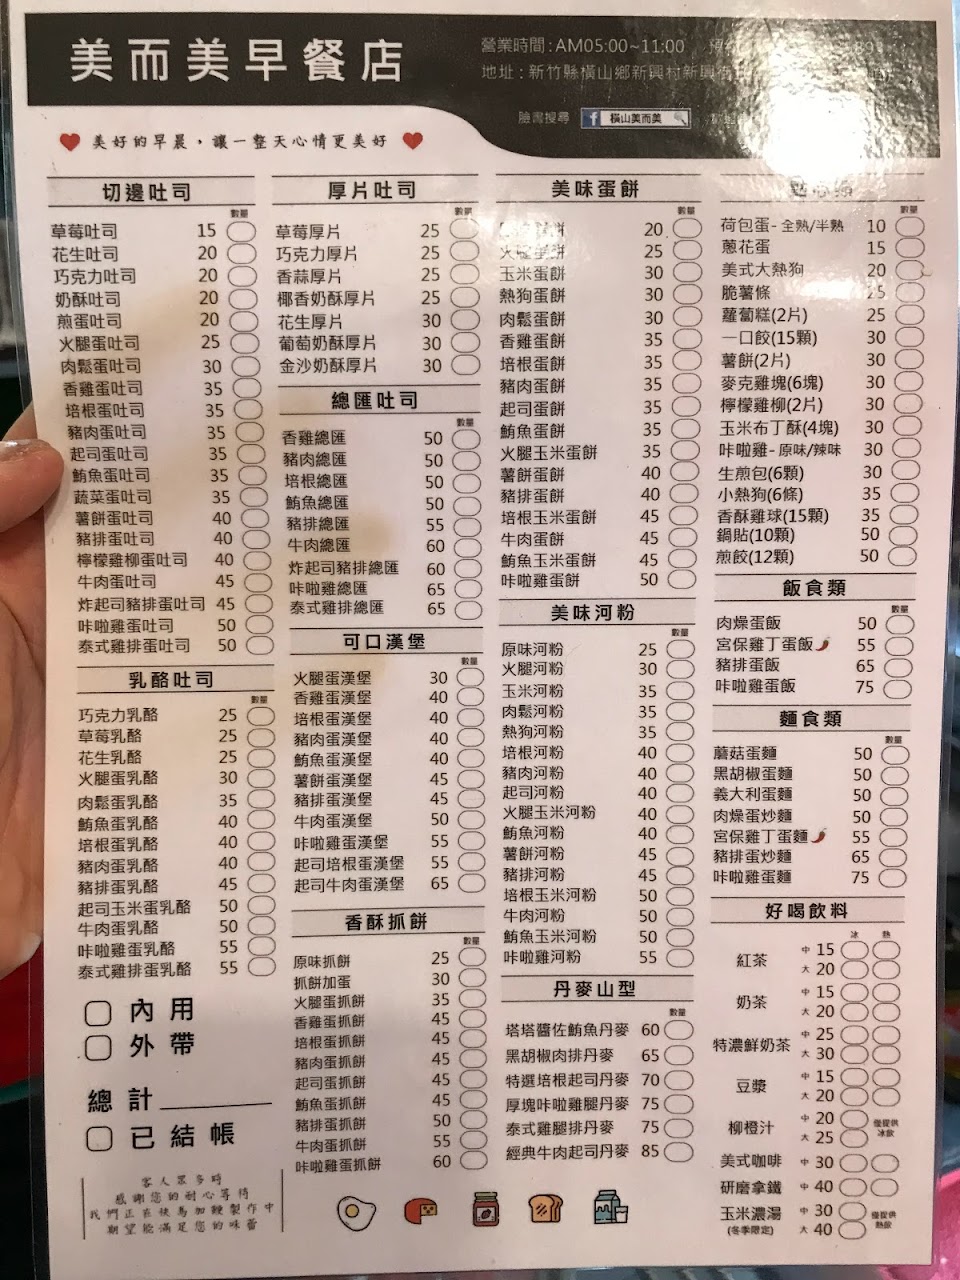 美而美早餐店
營業時間:AM05:00~11:00
地址:新竹縣橫山鄉新興村新興街
臉書搜尋 f 橫山美而美
美好的早晨,讓一整天心情更美好
切邊吐司
數量
草莓吐司 15
花生吐司 20
巧克力吐司 20
奶酥吐司 20
煎蛋吐司 20
火腿蛋吐司 25
肉鬆蛋吐司 30
香雞蛋吐司 35
培根蛋吐司 35
豬肉蛋吐司 35
起司蛋吐司 35
鮪魚蛋吐司 35
蔬菜蛋吐司 35
薯餅蛋吐司 40
豬排蛋吐司 40
檸檬雞柳蛋吐司 40
牛肉蛋吐司 45
炸起司豬排蛋吐司 45
咔啦雞蛋吐司 50
泰式雞排蛋吐司 50
乳酪吐司
數量
巧克力乳酪 25
草莓乳酪 25
花生乳酪 25
火腿蛋乳酪 30
肉鬆蛋乳酪 35
鮪魚蛋乳酪 40
培根蛋乳酪 40
豬肉蛋乳酪 40
豬排蛋乳酪 45
起司玉米蛋乳酪 50
牛肉蛋乳酪 50
咔啦雞蛋乳酪 55
泰式雞排蛋乳酪 55
內用
外帶
總計
已結帳
客人眾多時
感謝您的耐心等待
我們正在快馬加鞭製作中
期望能滿足您的味蕾
厚片吐司
數量
草莓厚片 25
巧克力厚片 25
香蒜厚片 25
椰香奶酥厚片 25
花生厚片 30
葡萄奶酥厚片 30
金沙奶酥厚片 30
總匯吐司
數量
香雞總匯 50
豬肉總匯 50
培根總匯 50
鮪魚總匯 50
豬排總匯 55
牛肉總匯 60
炸起司豬排總匯 60
咔啦雞總匯 65
泰式雞排總匯 65
可口漢堡
數量
火腿蛋漢堡 30
香雞蛋漢堡 40
培根蛋漢堡 40
豬肉蛋漢堡 40
鮪魚蛋漢堡 40
薯餅蛋漢堡 45
豬排蛋漢堡 45
牛肉蛋漢堡 50
咔啦雞蛋漢堡 55
起司培根蛋漢堡 55
起司牛肉蛋漢堡 65
香酥抓餅
數量
原味抓餅 25
抓餅加蛋 30
火腿蛋抓餅 35
香雞蛋抓餅 45
培根蛋抓餅 45
豬肉蛋抓餅 45
起司蛋抓餅 45
鮪魚蛋抓餅 45
豬排蛋抓餅 50
牛肉蛋抓餅 55
咔啦雞蛋抓餅 60
美味蛋餅
數量
蛋餅 20
火腿蛋餅 25
玉米蛋餅 30
熱狗蛋餅 30
肉鬆蛋餅 30
香雞蛋餅 35
培根蛋餅 35
豬肉蛋餅 35
起司蛋餅 35
鮪魚蛋餅 35
火腿玉米蛋餅 35
薯餅蛋餅 40
豬排蛋餅 40
培根玉米蛋餅 45
牛肉蛋餅 45
鮪魚玉米蛋餅 45
咔啦雞蛋餅 50
美味河粉
數量
原味河粉 25
火腿河粉 30
玉米河粉 35
肉鬆河粉 35
熱狗河粉 35
培根河粉 40
豬肉河粉 40
起司河粉 40
火腿玉米河粉 40
鮪魚河粉 40
薯餅河粉 45
豬排河粉 45
培根玉米河粉 50
牛肉河粉 50
鮪魚玉米河粉 50
咔啦雞河粉 55
丹麥山型
數量
塔塔醬佐鮪魚丹麥 60
黑胡椒肉排丹麥 65
特選培根起司丹麥 70
厚塊咔啦雞腿丹麥 75
泰式雞腿排丹麥 75
經典牛肉起司丹麥 85
點心類
數量
荷包蛋-全熟/半熟 10
蔥花蛋 15
美式大熱狗 20
脆薯條 25
蘿蔔糕(2片) 25
一口餃(15顆) 30
薯餅(2片) 30
麥克雞塊(6塊) 30
檸檬雞柳(2片) 30
玉米布丁酥(4塊) 30
咔啦雞-原味/辣味 30
生煎包(6顆) 30
小熱狗(6條) 35
香酥雞球(15顆) 35
鍋貼(10顆) 50
煎餃(12顆) 50
飯食類
數量
肉燥蛋飯 50
宮保雞丁蛋飯 55
豬排蛋飯 65
咔啦雞蛋飯 75
麵食類
數量
蘑菇蛋麵 50
黑胡椒蛋麵 50
義大利蛋麵 50
肉燥蛋炒麵 50
宮保雞丁蛋麵 55
豬排蛋炒麵 65
咔啦雞蛋麵 75
好喝飲料
冰 熱
紅茶 中 15
大 20
奶茶 中 15
大 20
特濃鮮奶茶 中 25
大 30
豆漿 中 15
大 20
柳橙汁 中 20 僅提供冰飲
大 25
美式咖啡 中 30
研磨拿鐵 中 40
玉米濃湯 中 30 僅提供熱飲
(冬季限定) 大 40